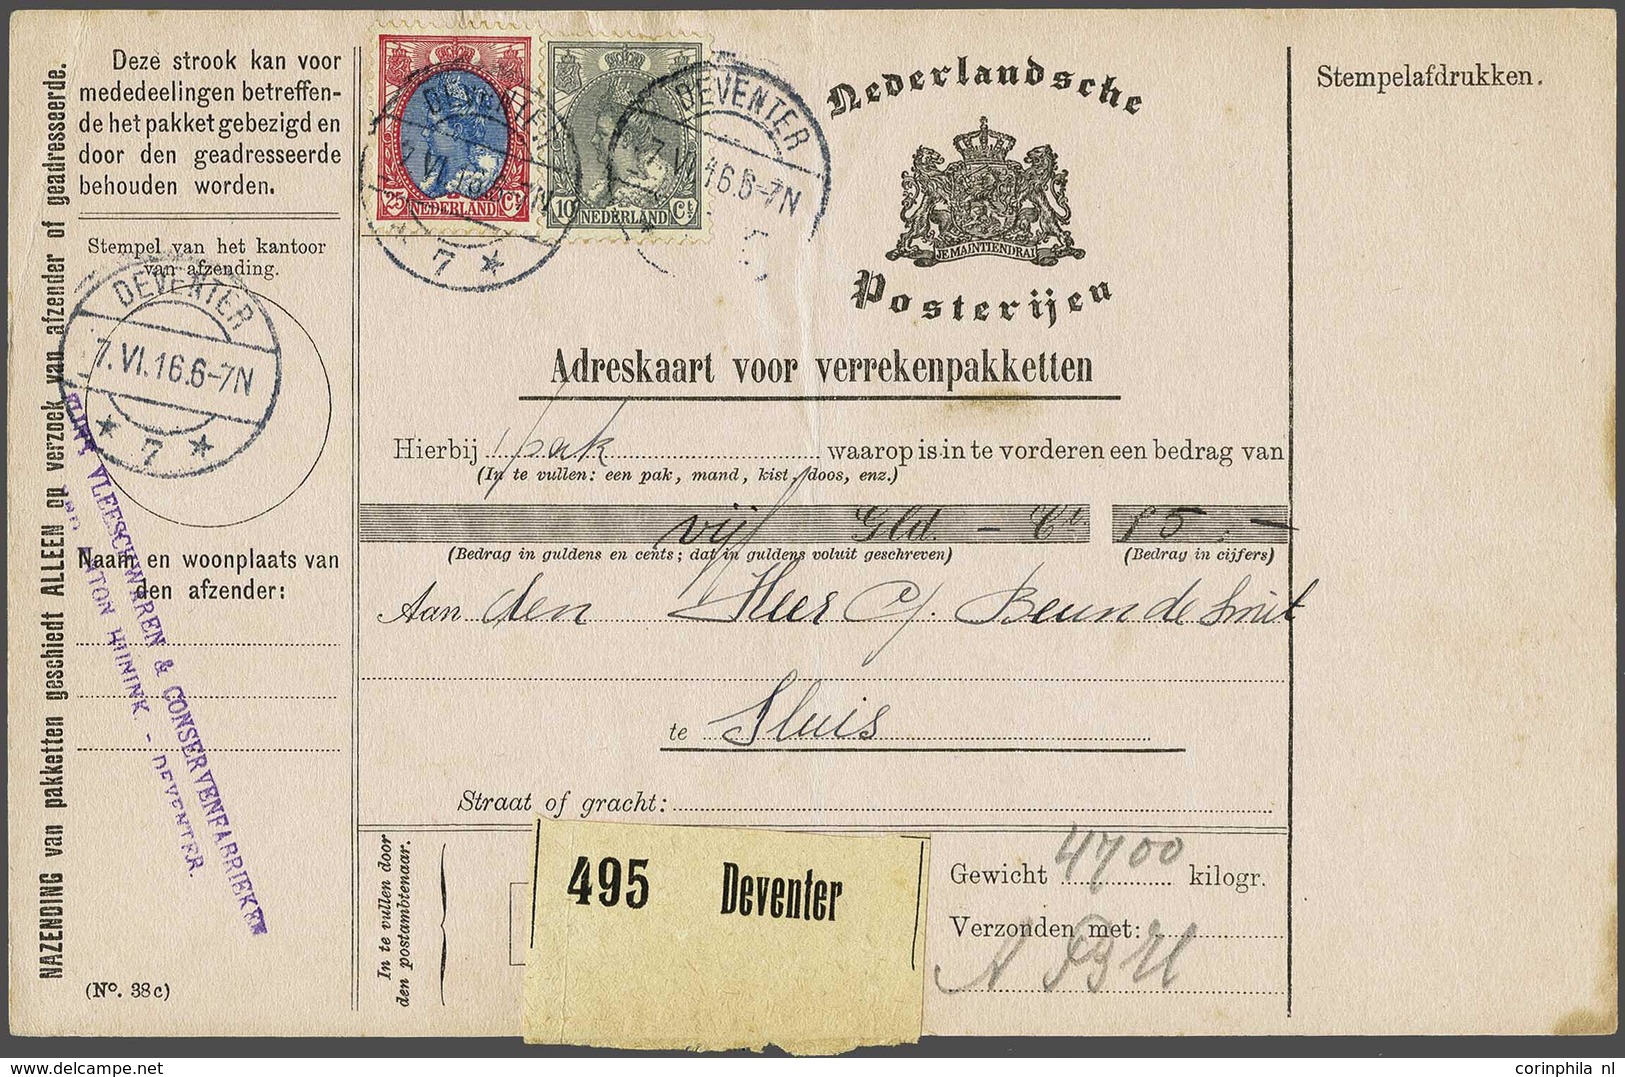 NAZENDING van pakketten geschiedt ALLEEN op verzoek van afzender of geadresseerde.
Deze strook kan voor
mededeelingen betreffen-
de het pakket gebezigd en
door den geadresseerde
behouden worden.
Stempel van het kantoor
van afzending.
DEVENTER
7.VI.16.6-7N
7
Naam en woonplaats van
den afzender:
VLEESCHWAREN & CONSERVENFABRIEKEN
ANTON HUNINK. - DEVENTER.
(No. 38c)
25 NEDERLAND Ct.
10 NEDERLAND Ct.
DEVENTER
VI.16.6-7N
7
DEVENTER
7.VI.16.6-7N
Nederlandsche
JE MAINTIENDRAI
Posterijen
Stempelafdrukken.
Adreskaart voor verrekenpakketten
Hierbij 1 pak waarop is in te vorderen een bedrag van
(In te vullen: een pak, mand, kist, doos, enz.)
vijf Gld. — Ct. f 5,—
(Bedrag in guldens en cents; dat in guldens voluit geschreven) (Bedrag in cijfers)
Aan den Heer C. Beun de Smit
te Sluis
Straat of gracht:
In te vullen door
den postambtenaar.
495 Deventer
Gewicht 4700 kilogr.
Verzonden met:
corinphila nl